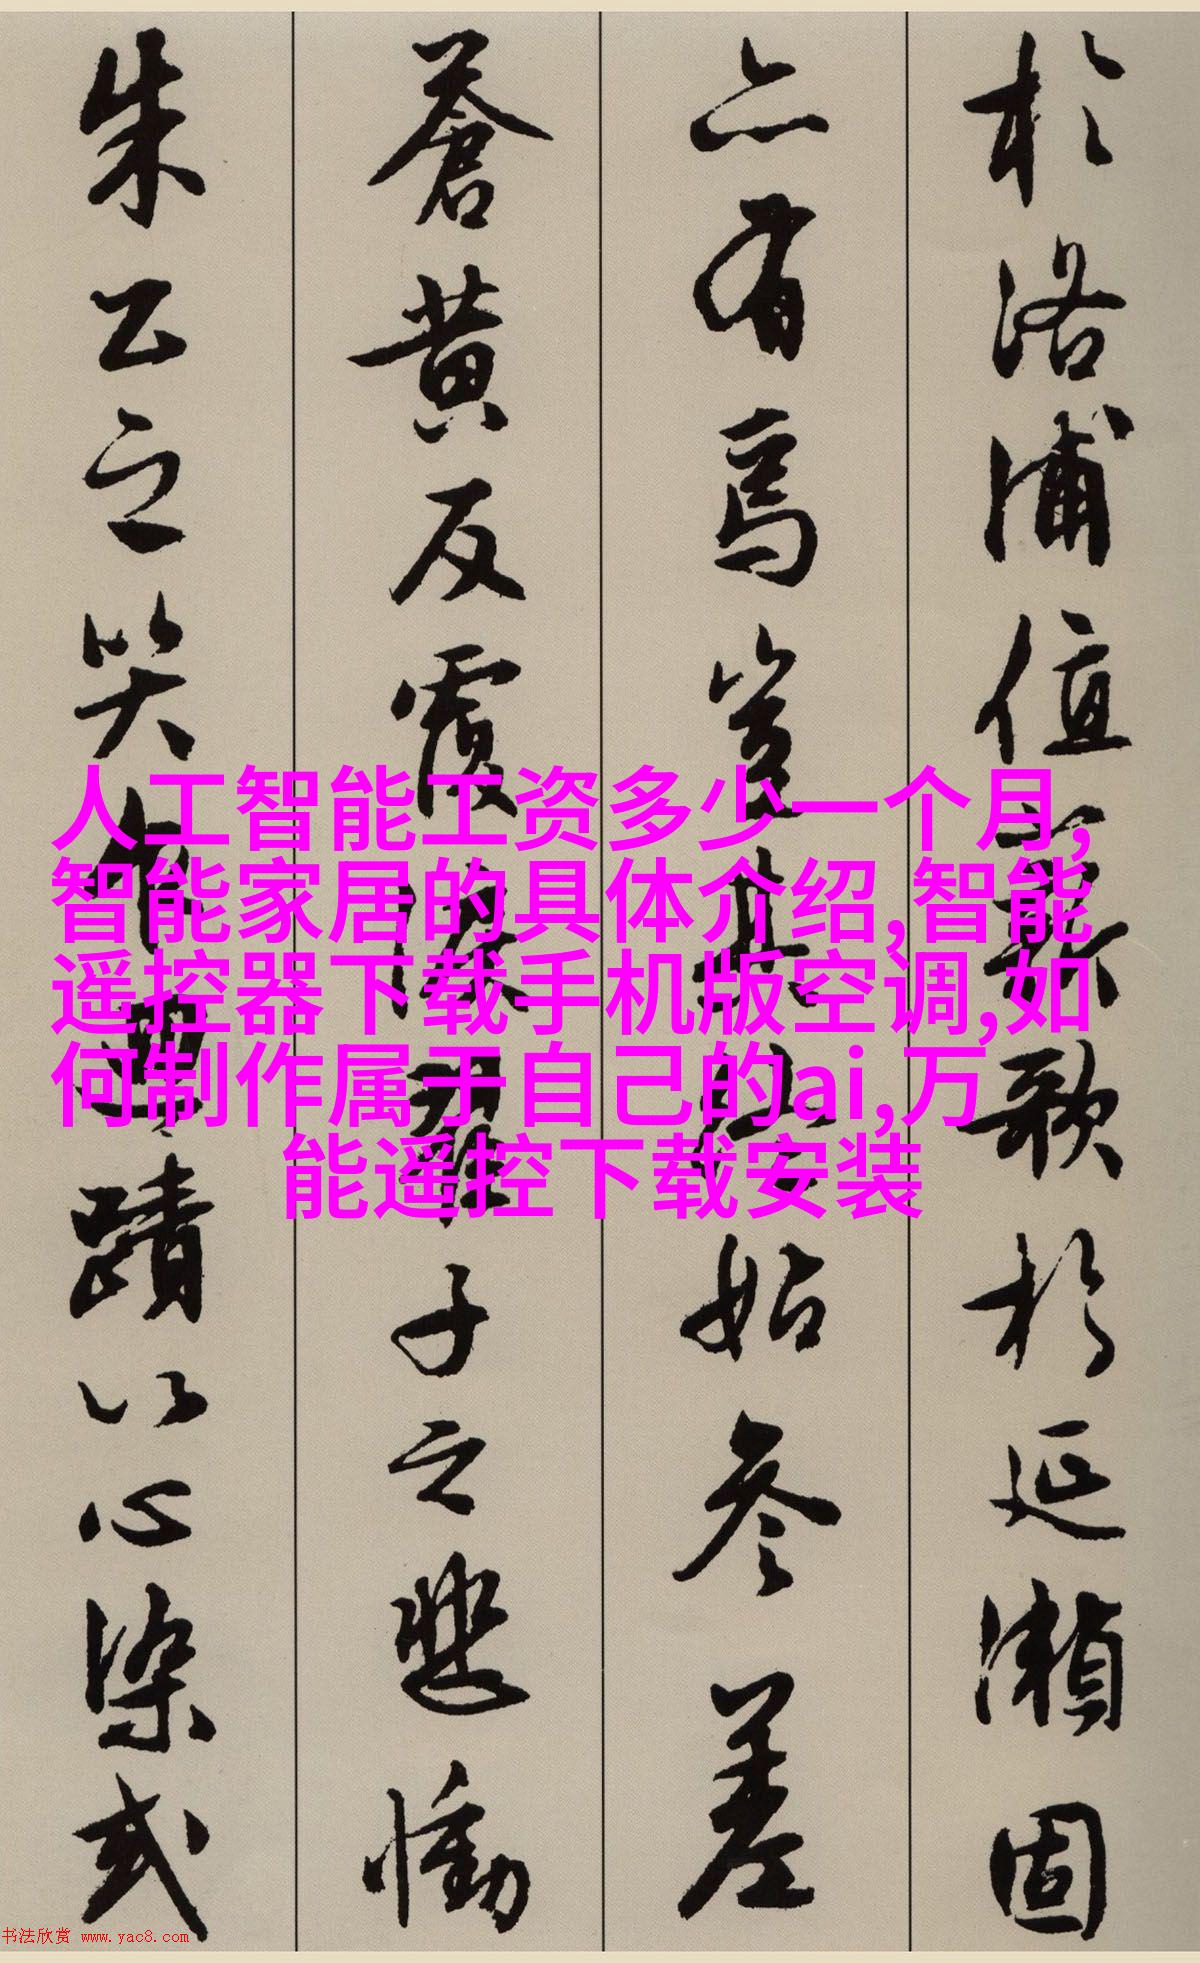 於洛浦值薪歌於延瀨固
亦有焉豈其終始參差
蒼黃反覆淚翟子之悲慟
朱公之哭乍迴蹟以心染或
人工智能工资多少一个月,
智能家居的具体介绍,智能
遥控器下载手机版空调,如
何制作属于自己的ai,万
能遥控下载安装
书法欣赏 www.yac8.com